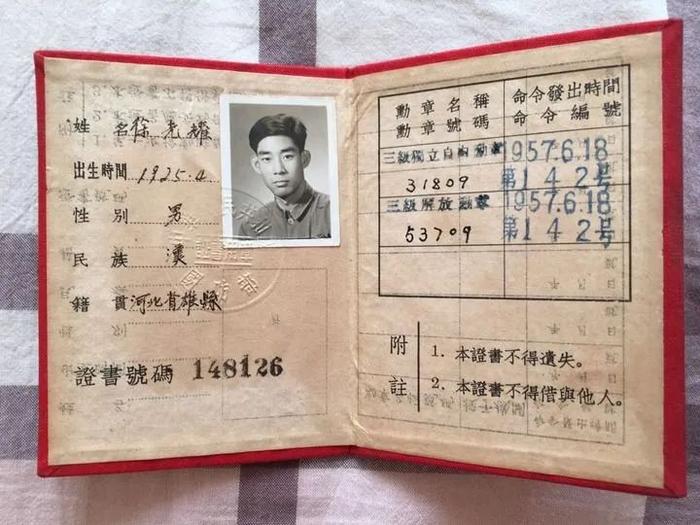 姓 名 徐光耀
出生時間 1925.4
性 别 男
民 族 漢
籍 貫 河北省雄縣
證書號碼 148126
勳章名稱 命令發出時間
勳章號碼 命令編號
三級獨立自由勳章 1957.6.18
31809 第142号
三級解放勳章 1957.6.18
53709 第142号
附註
1. 本證書不得遺失。
2. 本證書不得借與他人。